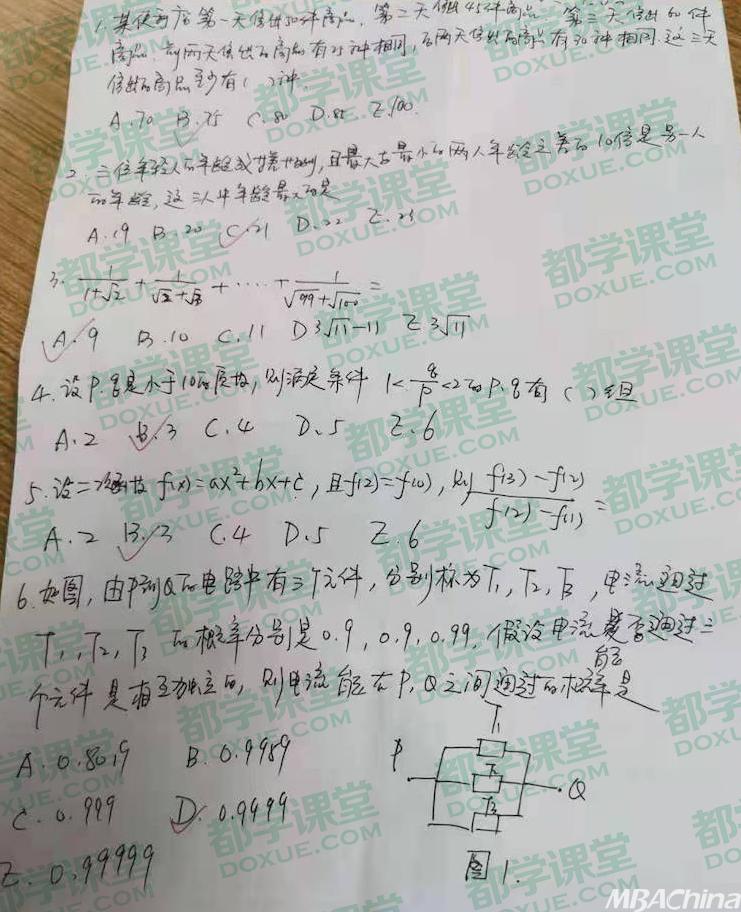 1. 某便利店第一天售出50件商品，第二天售出45件商品，第三天售出60件
商品，前两天售出的商品有25种相同，后两天售出的商品有30种相同.这三天
售出的商品至少有（ ）种.
A.70 B.75 C.80 D.85 E.100.
2. 三位年轻人的年龄成等差数列，且最大与最小的两人年龄之差的10倍是另一人
的年龄，这三人中年龄最大的是
A.19 B.20 C.21 D.22 E.23
3. 1/(1+√2) + 1/(√2+√3) + …… + 1/(√99+√100) =
A.9 B.10 C.11 D 3√11-11 E 3√11
4. 设P.q是小于10的质数，则满足条件 1<q/p<2的P.q有（ ）组
A.2 B.3 C.4 D.5 E.6
5. 设二次函数 f(x)=ax²+bx+c，且f(2)=f(0)，则 (f(3)-f(2))/(f(2)-f(1)) =
A.2 B.3 C.4 D.5 E.6
6. 如图，由P到Q的电路中有三个元件，分别标为T₁，T₂，T₃，电流通过
T₁，T₂，T₃的概率分别是0.9，0.9，0.99，假设电流能否通过三
个元件是相互独立的，则电流能在P，Q之间通过的概率是
A. 0.8019 B. 0.9989
C. 0.999 D. 0.9999
E. 0.99999
T₁
P T₂ Q
T₃
图1.
都学课堂
DOXUE.COM
MBAChina